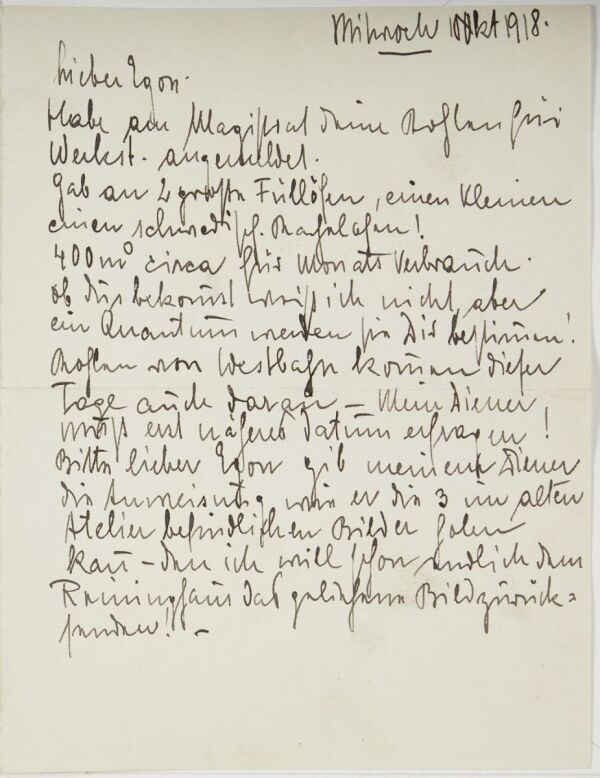 Mittwoch Okt 1918.
Lieber Egon.
Habe am Magistrat deine Kohlen für
Werkst. angemeldet.
Gab an 2 große Füllöfen, einen kleinen
einen schwedisch. Kachelofen!
400 m° circa für Monats Verbrauch.
ob Du's bekomst weiß ich nicht, aber
ein Quantum werden sie Dir bestimen!
Kohlen von Westbahn komen dieser
Tage auch daran, – Mein Diener
muß erst näheres Datum erfragen!
Bitte lieber Egon gib meinem Diener
die Anweisung wie er die 3 im alten
Atelier befindlichen Bilder holen
kan – den ich will schon endlich dem
Reininghaus das geliehene Bild zurück=
senden! –